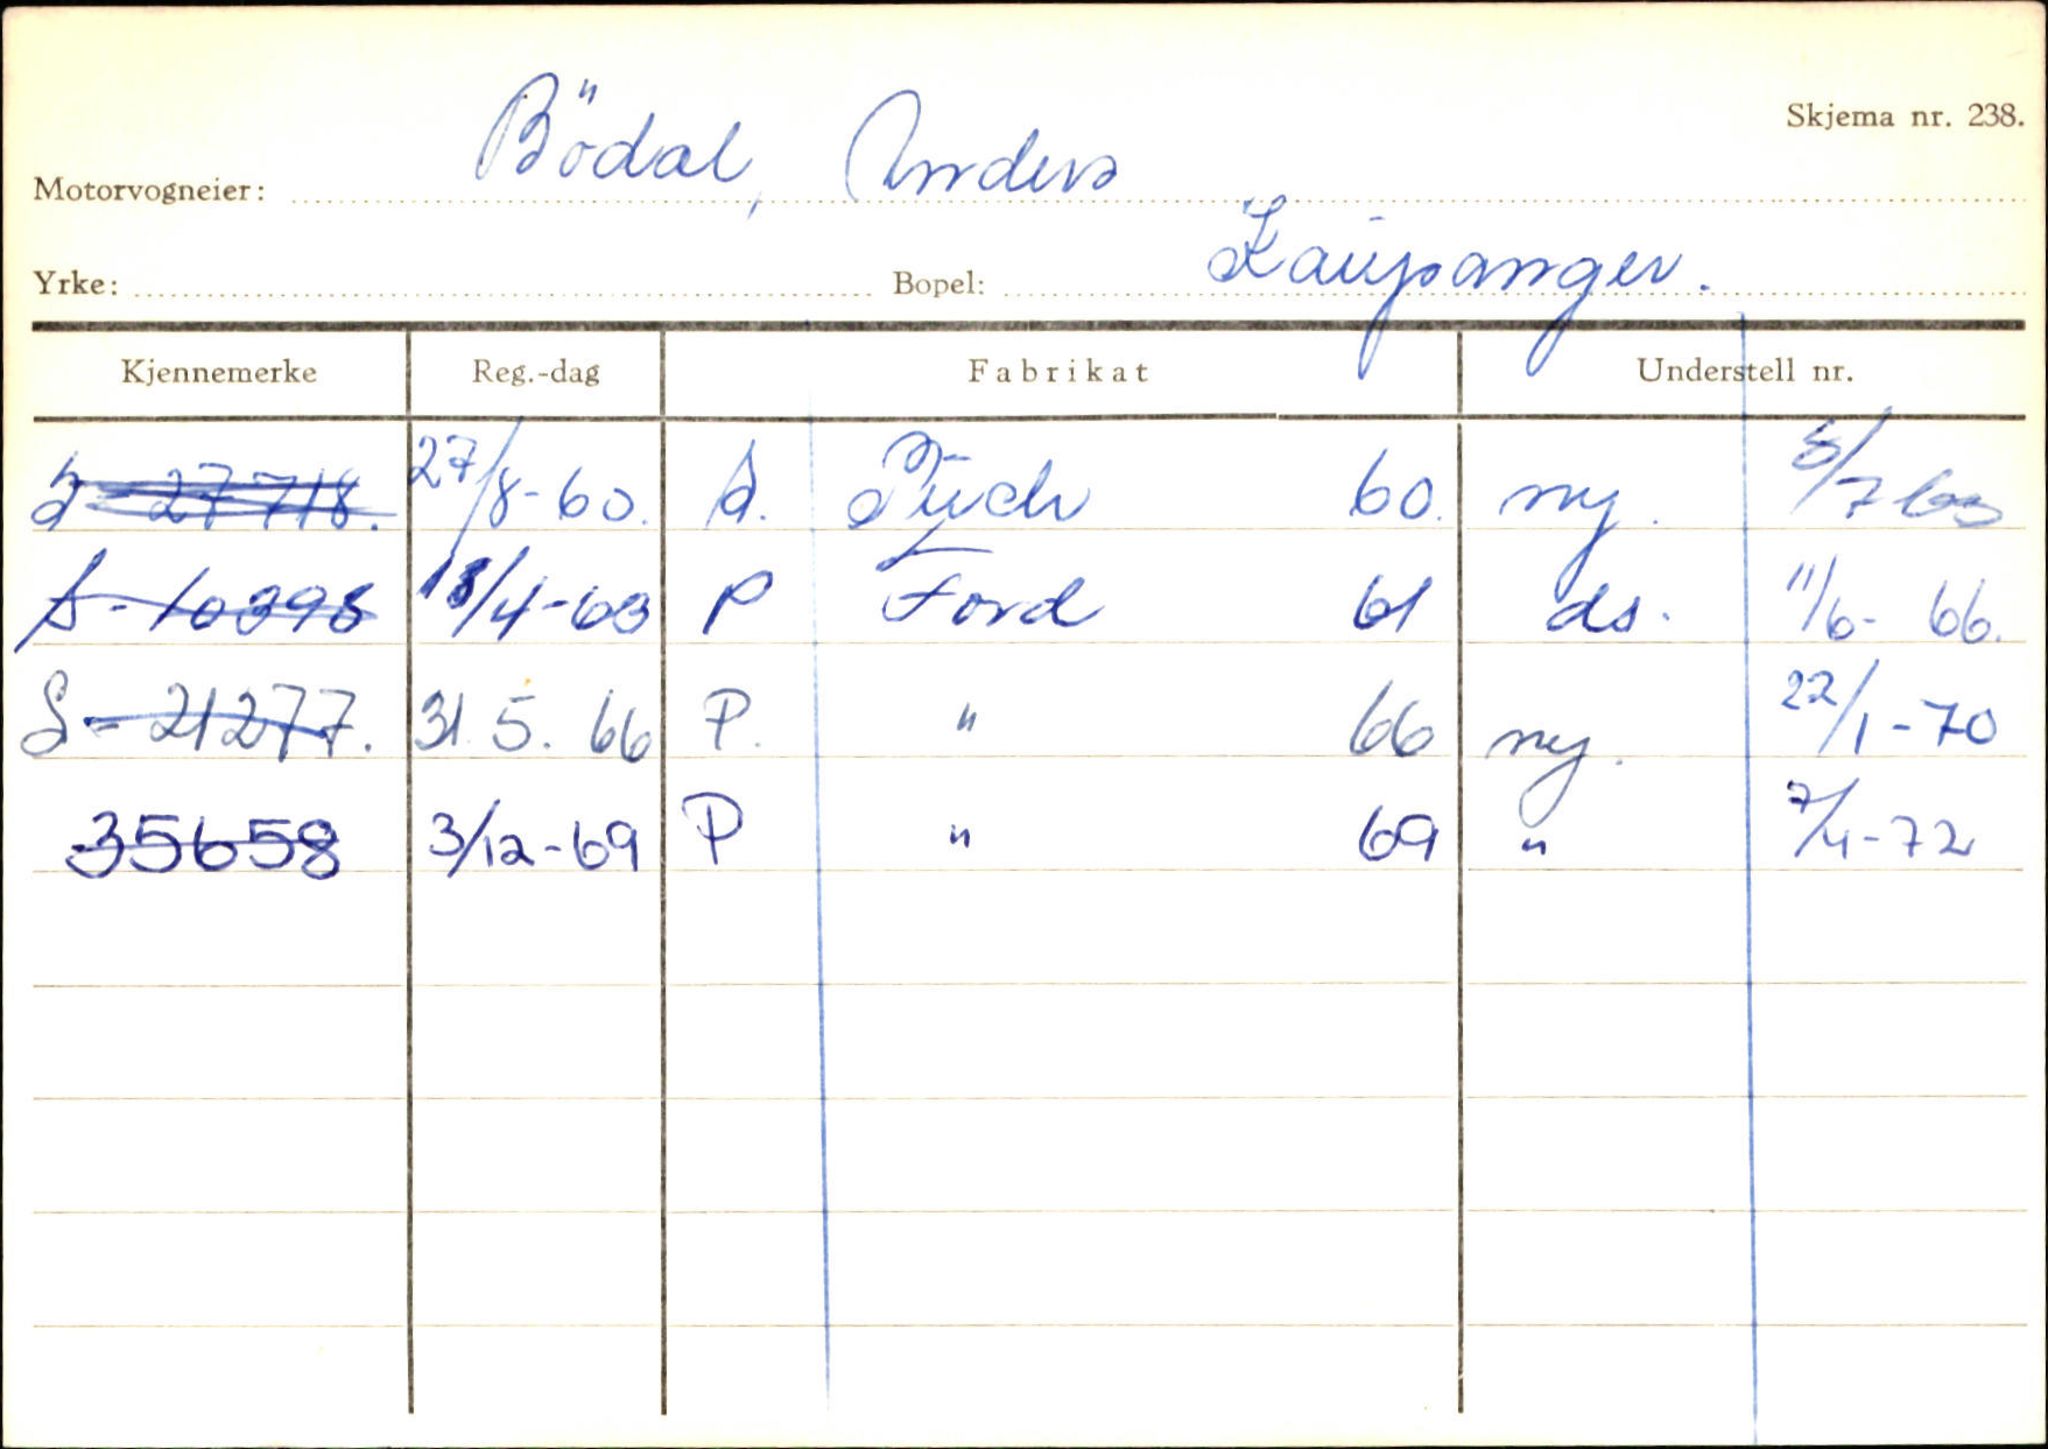 Skjema nr. 238.
Motorvogneier: Bödal, Anders
Yrke: Bopel: Kaupanger.
Kjennemerke Reg.-dag Fabrikat Understell nr.
S-27718. 27/8-60. S. Puch 60. ny. 5/7 63
S-10398 18/4-63 P Ford 61 ds. 11/6- 66.
S-21277. 31.5.66 P. " 66 ny. 22/1-70
35658 3/12-69 P " 69 " 7/4-72